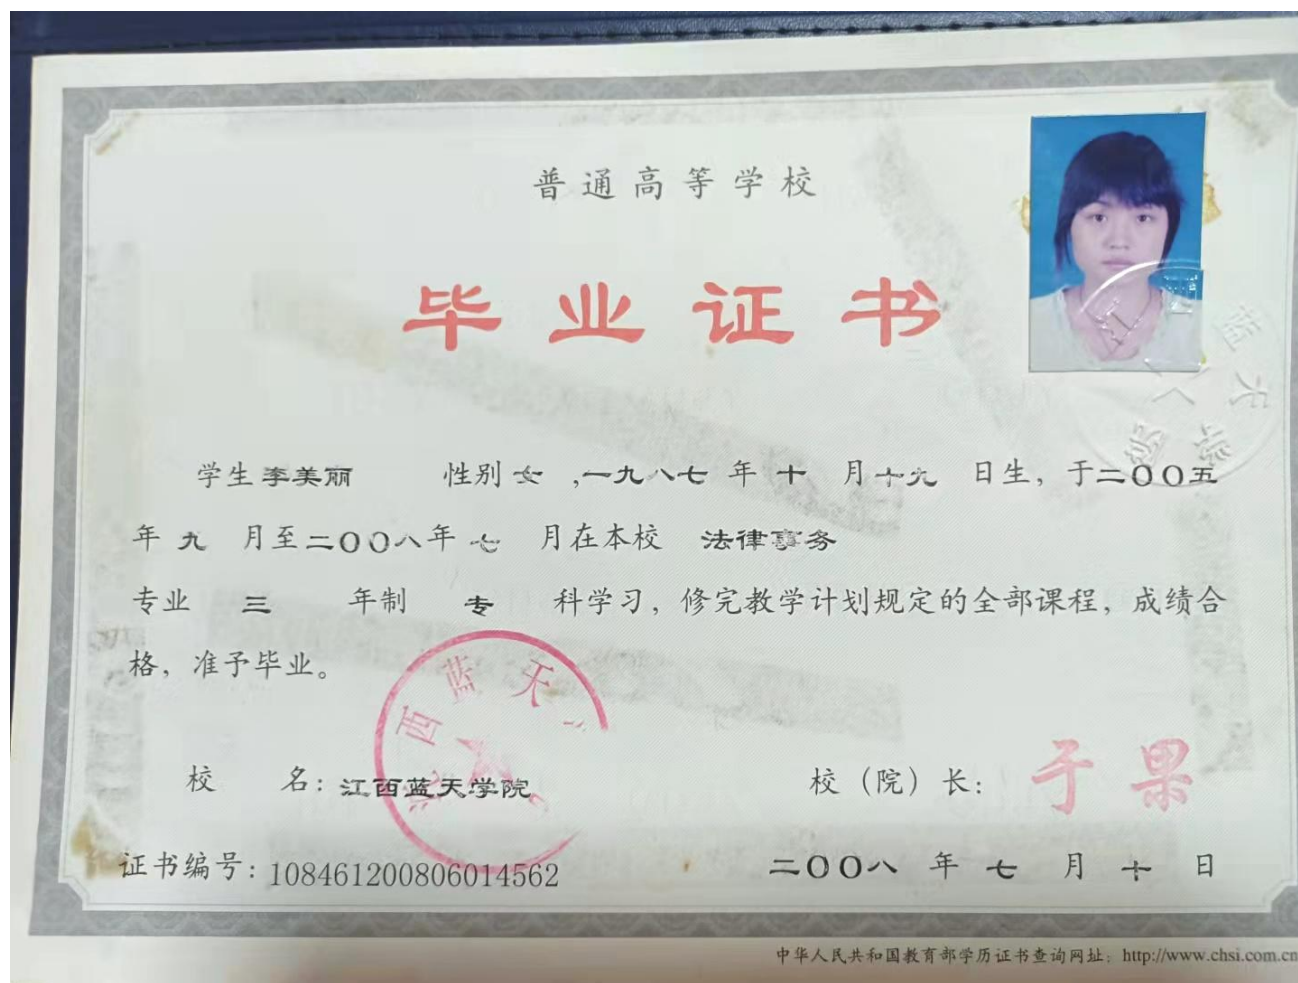 普通高等学校
毕业证书
学生 李美丽 性别 女 ,一九八七 年 十 月 十九 日生，于二〇〇五
年 九 月至二〇〇八年 七 月在本校 法律事务
专业 三 年制 专 科学习，修完教学计划规定的全部课程，成绩合
格，准予毕业。
西蓝天
校 名：江西蓝天学院 校（院）长：于果
证书编号：108461200806014562 二〇〇八 年 七 月 十 日
中华人民共和国教育部学历证书查询网址：http://www.chsi.com.cn